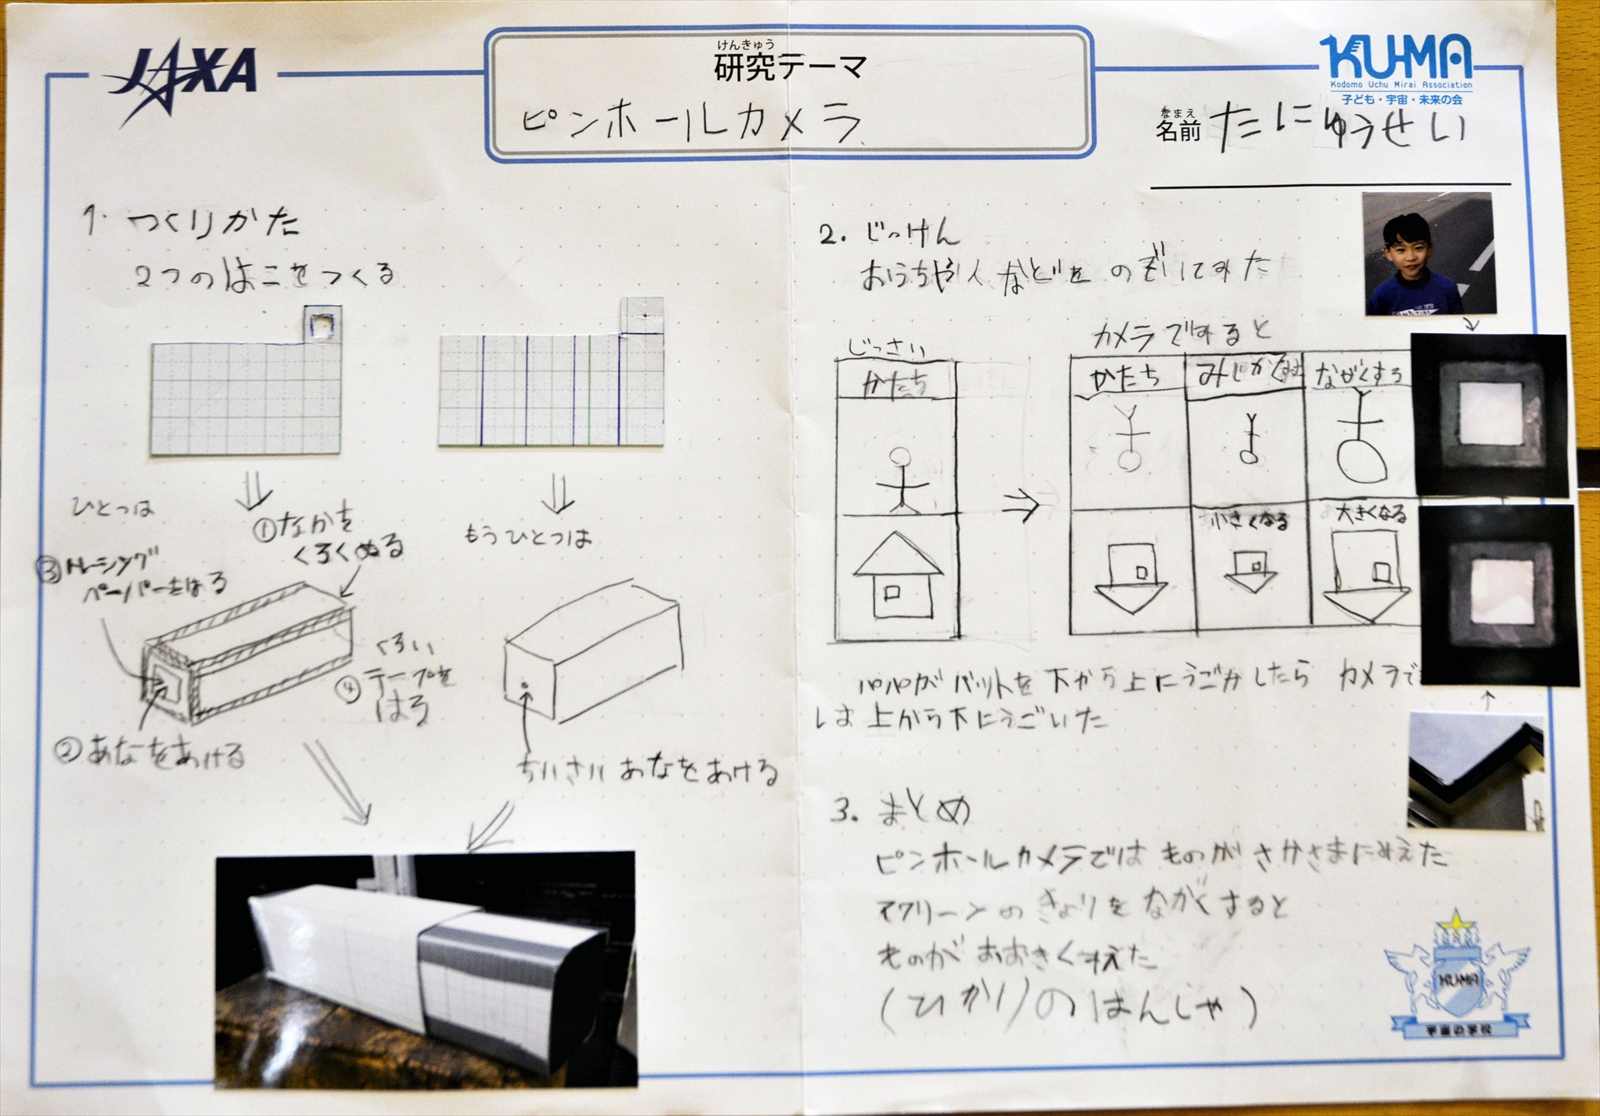 JAXA
けんきゅう
研究テーマ
ピンホールカメラ
KU-MA
Kodomo Uchu Mirai Association
子ども・宇宙・未来の会
なまえ
名前 たにゅうせい
1. つくりかた
2つのはこをつくる
ひとつは
①なかを
くろくぬる
③トレーシング
ペーパーをはる
くろい
④テープを
はる
②あなをあける
もうひとつは
ちいさいあなをあける
2. じっけん
おうちや人などをのぞいてみた
じっさい
かたち
カメラでみると
かたち
みじかくすると
ながくする
小さくなる
大きくなる
パパがバットを下から上にうごかしたら カメラで
は上から下にうごいた
3. まとめ
ピンホールカメラではものがさかさまにみえた
スクリーンのきょりをながくすると
ものがおおきくみえた
(ひかりのはんしゃ)
KU-MA
宇宙の学校